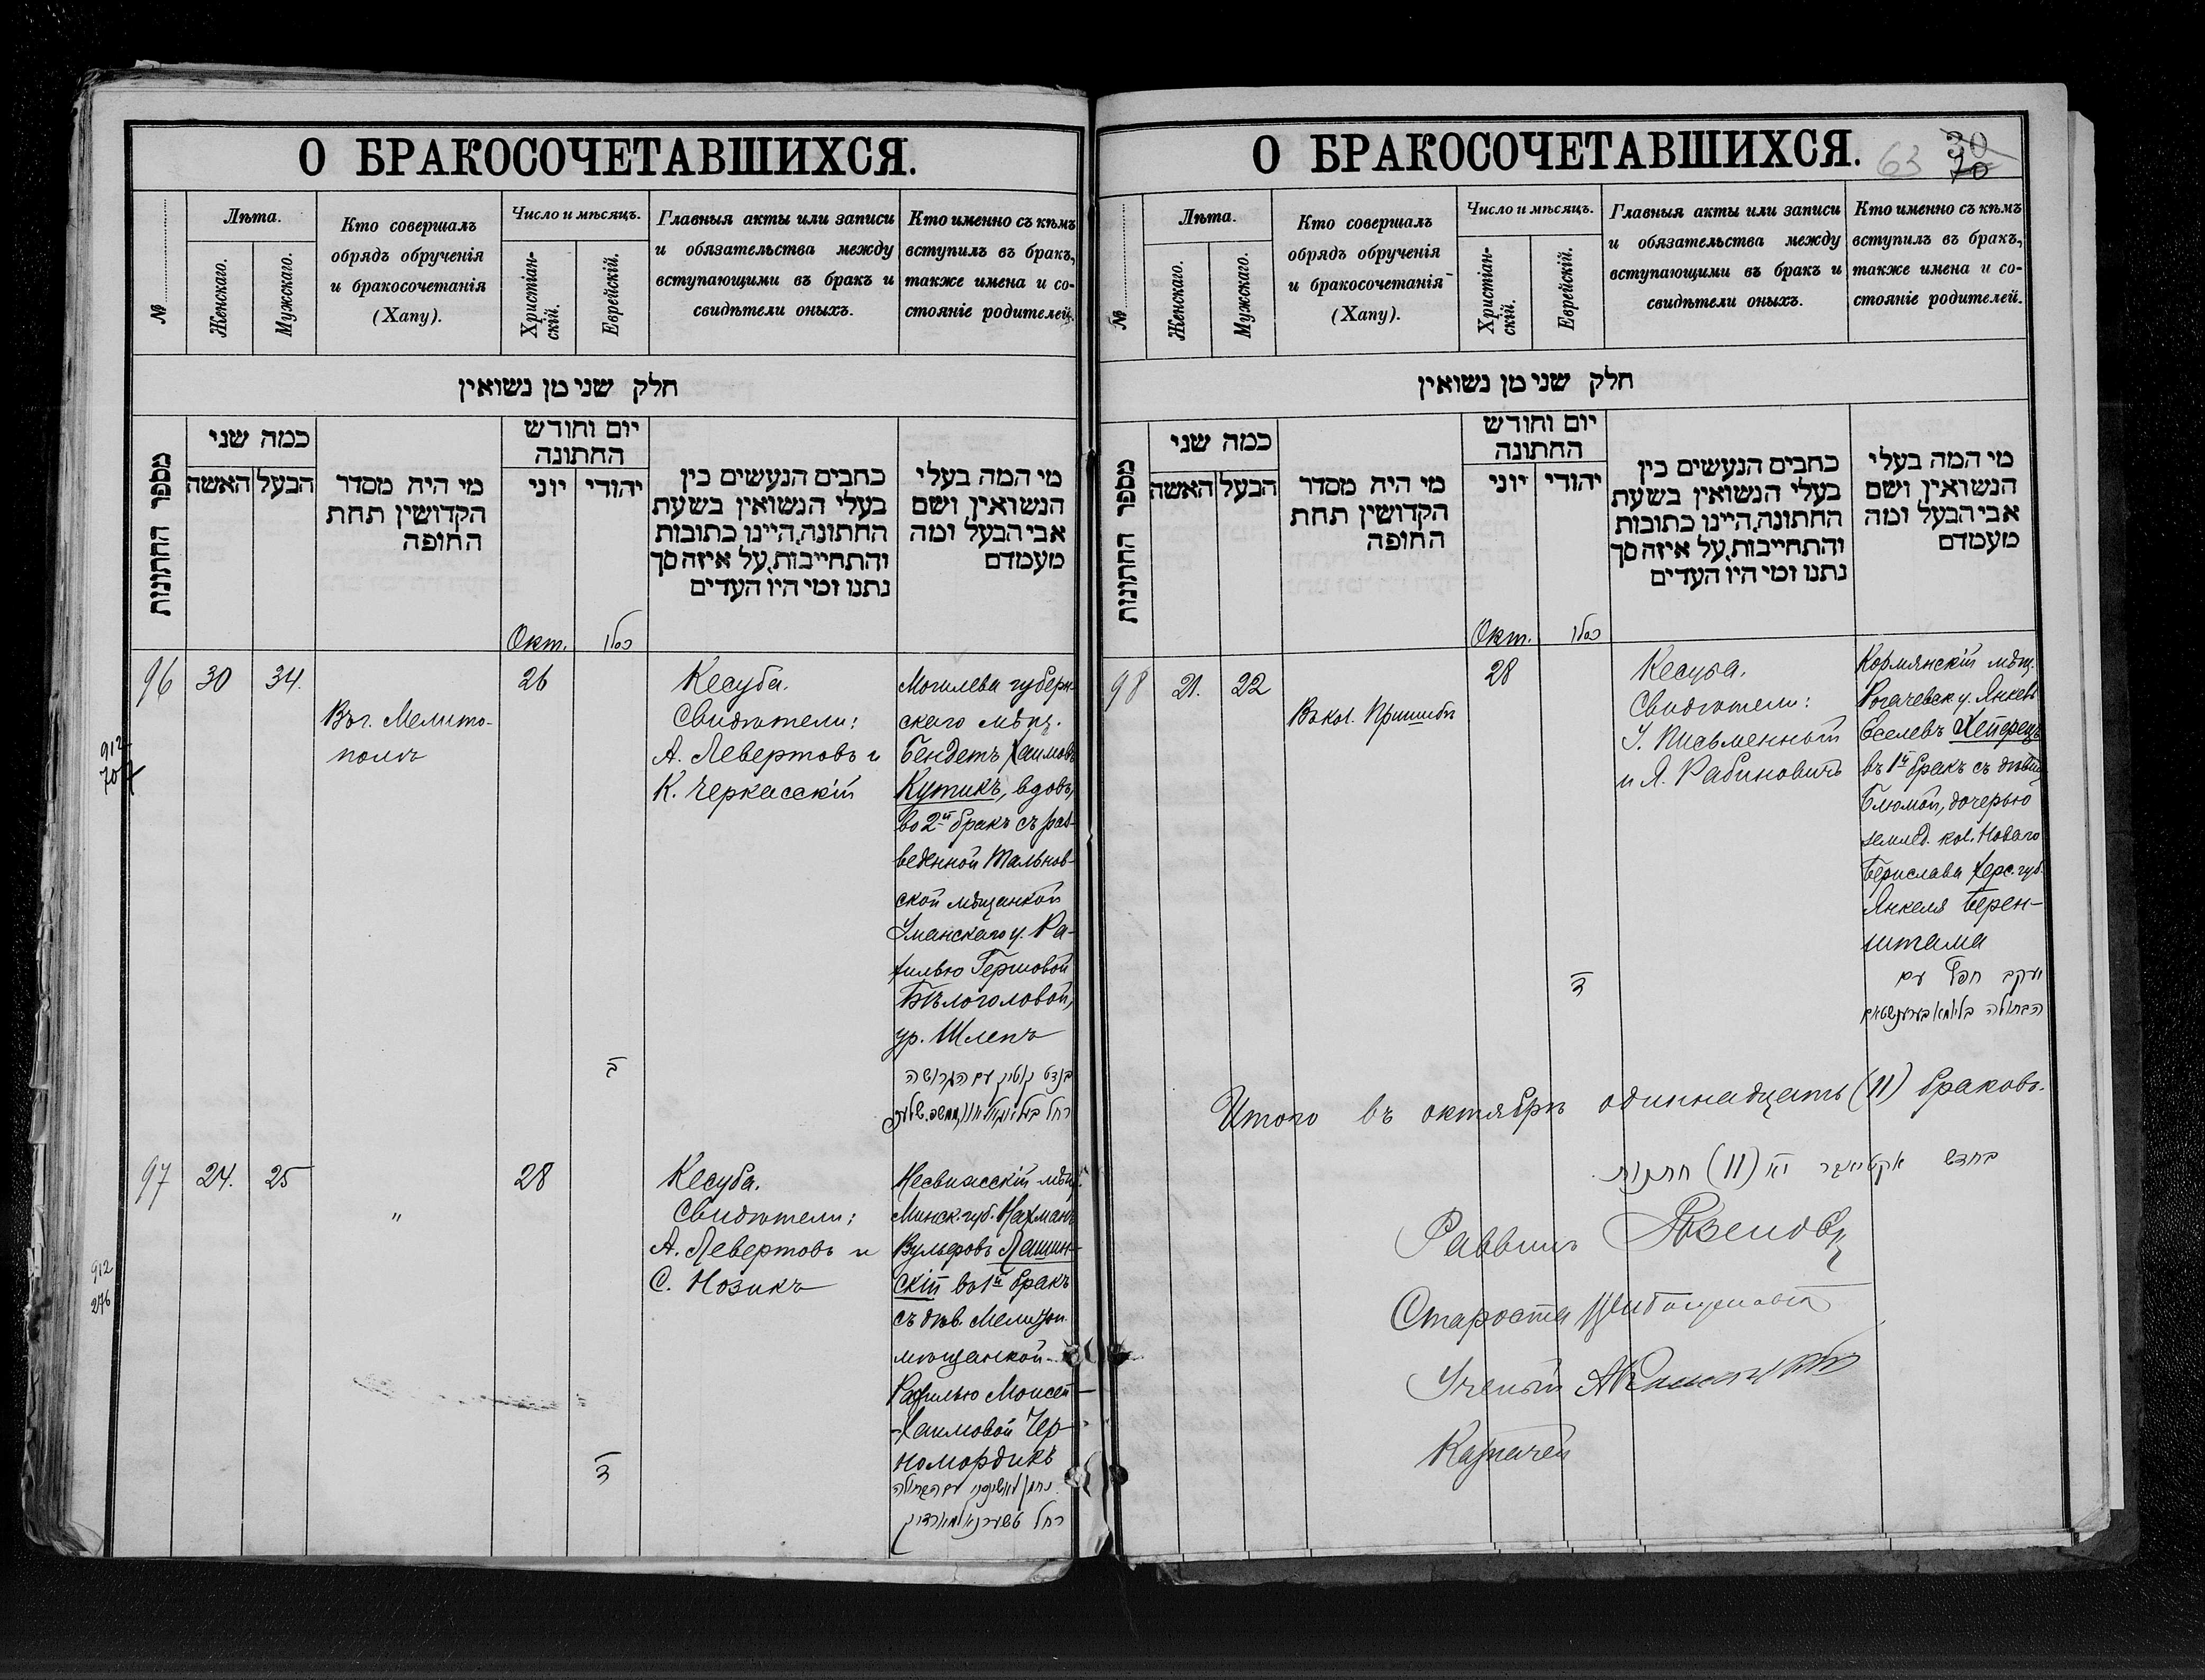 О БРАКОСОЧЕТАВШИХСЯ.
№
Лѣта.
Женскаго.
Мужскаго.
Кто совершалъ
обрядъ обрученія
и бракосочетанія
(Хапу).
Число и мѣсяцъ.
Христіан-
скій.
Еврейскій.
Главныя акты или записи
и обязательства между
вступающими въ бракъ и
свидѣтели оныхъ.
Кто именно съ кѣмъ
вступилъ въ бракъ,
также имена и со-
стояніе родителей.
חלק שני מן נשואין
מספר החתונות
כמה שני
האשה
הבעל
מי היה מסדר
הקדושין תחת
החופה
יום וחודש
החתונה
יוני
יהודי
כתבים הנעשים בין
בעלי הנשואין בשעת
החתונה, היינו כתובות
והתחייבות, על איזה סך
נתנו ומי היו העדים
מי המה בעלי
הנשואין ושם
אבי הבעל ומה
מעמדם
Окт.
כסלו
96
30
34.
Въ г. Мелито-
полѣ
26
ב
Кесуба.
Свидѣтели:
А. Левертовъ и
К. Черкасскій
Могилева губерн-
скаго мѣщ.
Бендетъ Хаимовъ
Кутикъ, вдов,
во 2й бракъ съ раз-
веденной Тальнов-
ской мѣщанкой
Уманскаго у. Ра-
хилью Гершовой
Бѣлоголовой,
ур. Шлепъ
בנדט קוטיק עם הגרושה
912
704
97
24.
25
"
28
ד
Кесуба.
Свидѣтели:
А. Левертовъ и
С. Нозикъ
Несвижскій мѣщ.
Минск. губ. Нахманъ
Вульфовъ Лашин-
скій въ 1й бракъ
съ дѣв. Мелитоп.
мѣщанкой
Рахилью Моисей-
-Хаимовой Чер-
номордикъ
נחמן לאשינסקי עם הבתולה
רחל טשערנאמארדיק
912
276
О БРАКОСОЧЕТАВШИХСЯ.
63
30
70
№
Лѣта.
Женскаго.
Мужскаго.
Кто совершалъ
обрядъ обрученія
и бракосочетанія
(Хапу).
Число и мѣсяцъ.
Христіан-
скій.
Еврейскій.
Главныя акты или записи
и обязательства между
вступающими въ бракъ и
свидѣтели оныхъ.
Кто именно съ кѣмъ
вступилъ въ бракъ,
также имена и со-
стояніе родителей.
חלק שני מן נשואין
מספר החתונות
כמה שני
האשה
הבעל
מי היה מסדר
הקדושין תחת
החופה
יום וחודש
החתונה
יוני
יהודי
כתבים הנעשים בין
בעלי הנשואין בשעת
החתונה, היינו כתובות
והתחייבות, על איזה סך
נתנו ומי היו העדים
מי המה בעלי
הנשואין ושם
אבי הבעל ומה
מעמדם
Окт.
כסלו
98
21.
22
Въ кол. Пришибъ
28
ד
Кесуба.
Свидѣтели:
У. Письменный
и Я. Рабиновичъ
Кормянскій мѣщ.
Рогачевск. у. Янкель
Еселевъ Хейфецъ
въ 1й бракъ съ дѣвиц.
Блюмой, дочерью
землед. кол. Новаго
Берислава Херс. губ.
Янкеля Берен-
штама
יעקב חפץ עם
הבתולה בלומא בערענשטאם
Итого въ октябрѣ одиннадцать (11) браковъ.
בחדש אקטיאבר יא (11) חתונות
Раввинъ
Староста
Ученый
Казначей